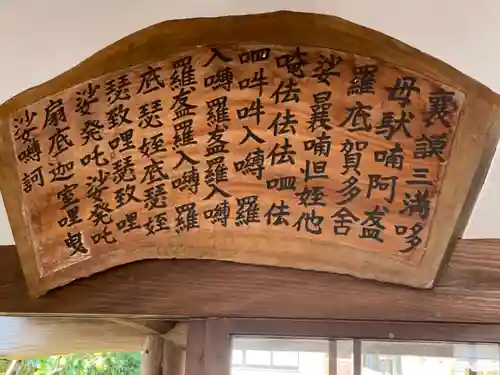 曩謨三満哆
母駄喃阿盋
羅底賀多舍
娑曩喃怛姪他
唵佉佉佉呬佉
呬吽吽入嚩羅
入嚩羅盋羅入嚩
羅盋羅入嚩羅
底瑟姹底瑟姹
瑟致哩瑟致哩
娑發吒娑發吒
扇底迦室哩曳
娑嚩訶